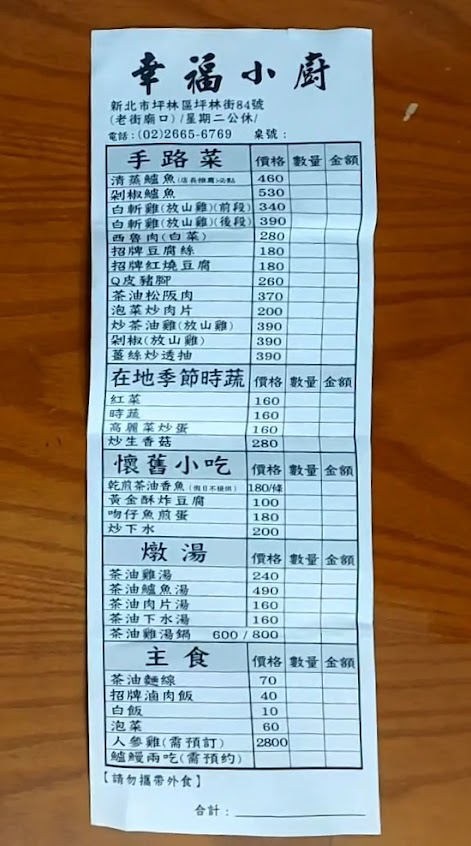 幸福小廚
新北市坪林區坪林街84號
(老街廟口)/星期二公休/
電話:(02)2665-6769 桌號:
手路菜 價格 數量 金額
清蒸鱸魚(店長推薦)必點 460
剁椒鱸魚 530
白斬雞(放山雞)(前段) 340
白斬雞(放山雞)(後段) 390
西魯肉(白菜) 280
招牌豆腐絲 180
招牌紅燒豆腐 180
Q皮豬腳 260
茶油松阪肉 370
泡菜炒肉片 200
炒茶油雞(放山雞) 390
剁椒(放山雞) 390
薑絲炒透抽 390
在地季節時蔬 價格 數量 金額
紅菜 160
時蔬 160
高麗菜炒蛋 160
炒生香菇 280
懷舊小吃 價格 數量 金額
乾煎茶油香魚(假日不提供) 180/條
黃金酥炸豆腐 100
吻仔魚煎蛋 180
炒下水 200
燉湯 價格 數量 金額
茶油雞湯 240
茶油鱸魚湯 490
茶油肉片湯 160
茶油下水湯 160
茶油雞湯鍋 600/800
主食 價格 數量 金額
茶油麵線 70
招牌滷肉飯 40
白飯 10
泡菜 60
人參雞(需預訂) 2800
鱸鰻兩吃(需預約)
【請勿攜帶外食】
合計: